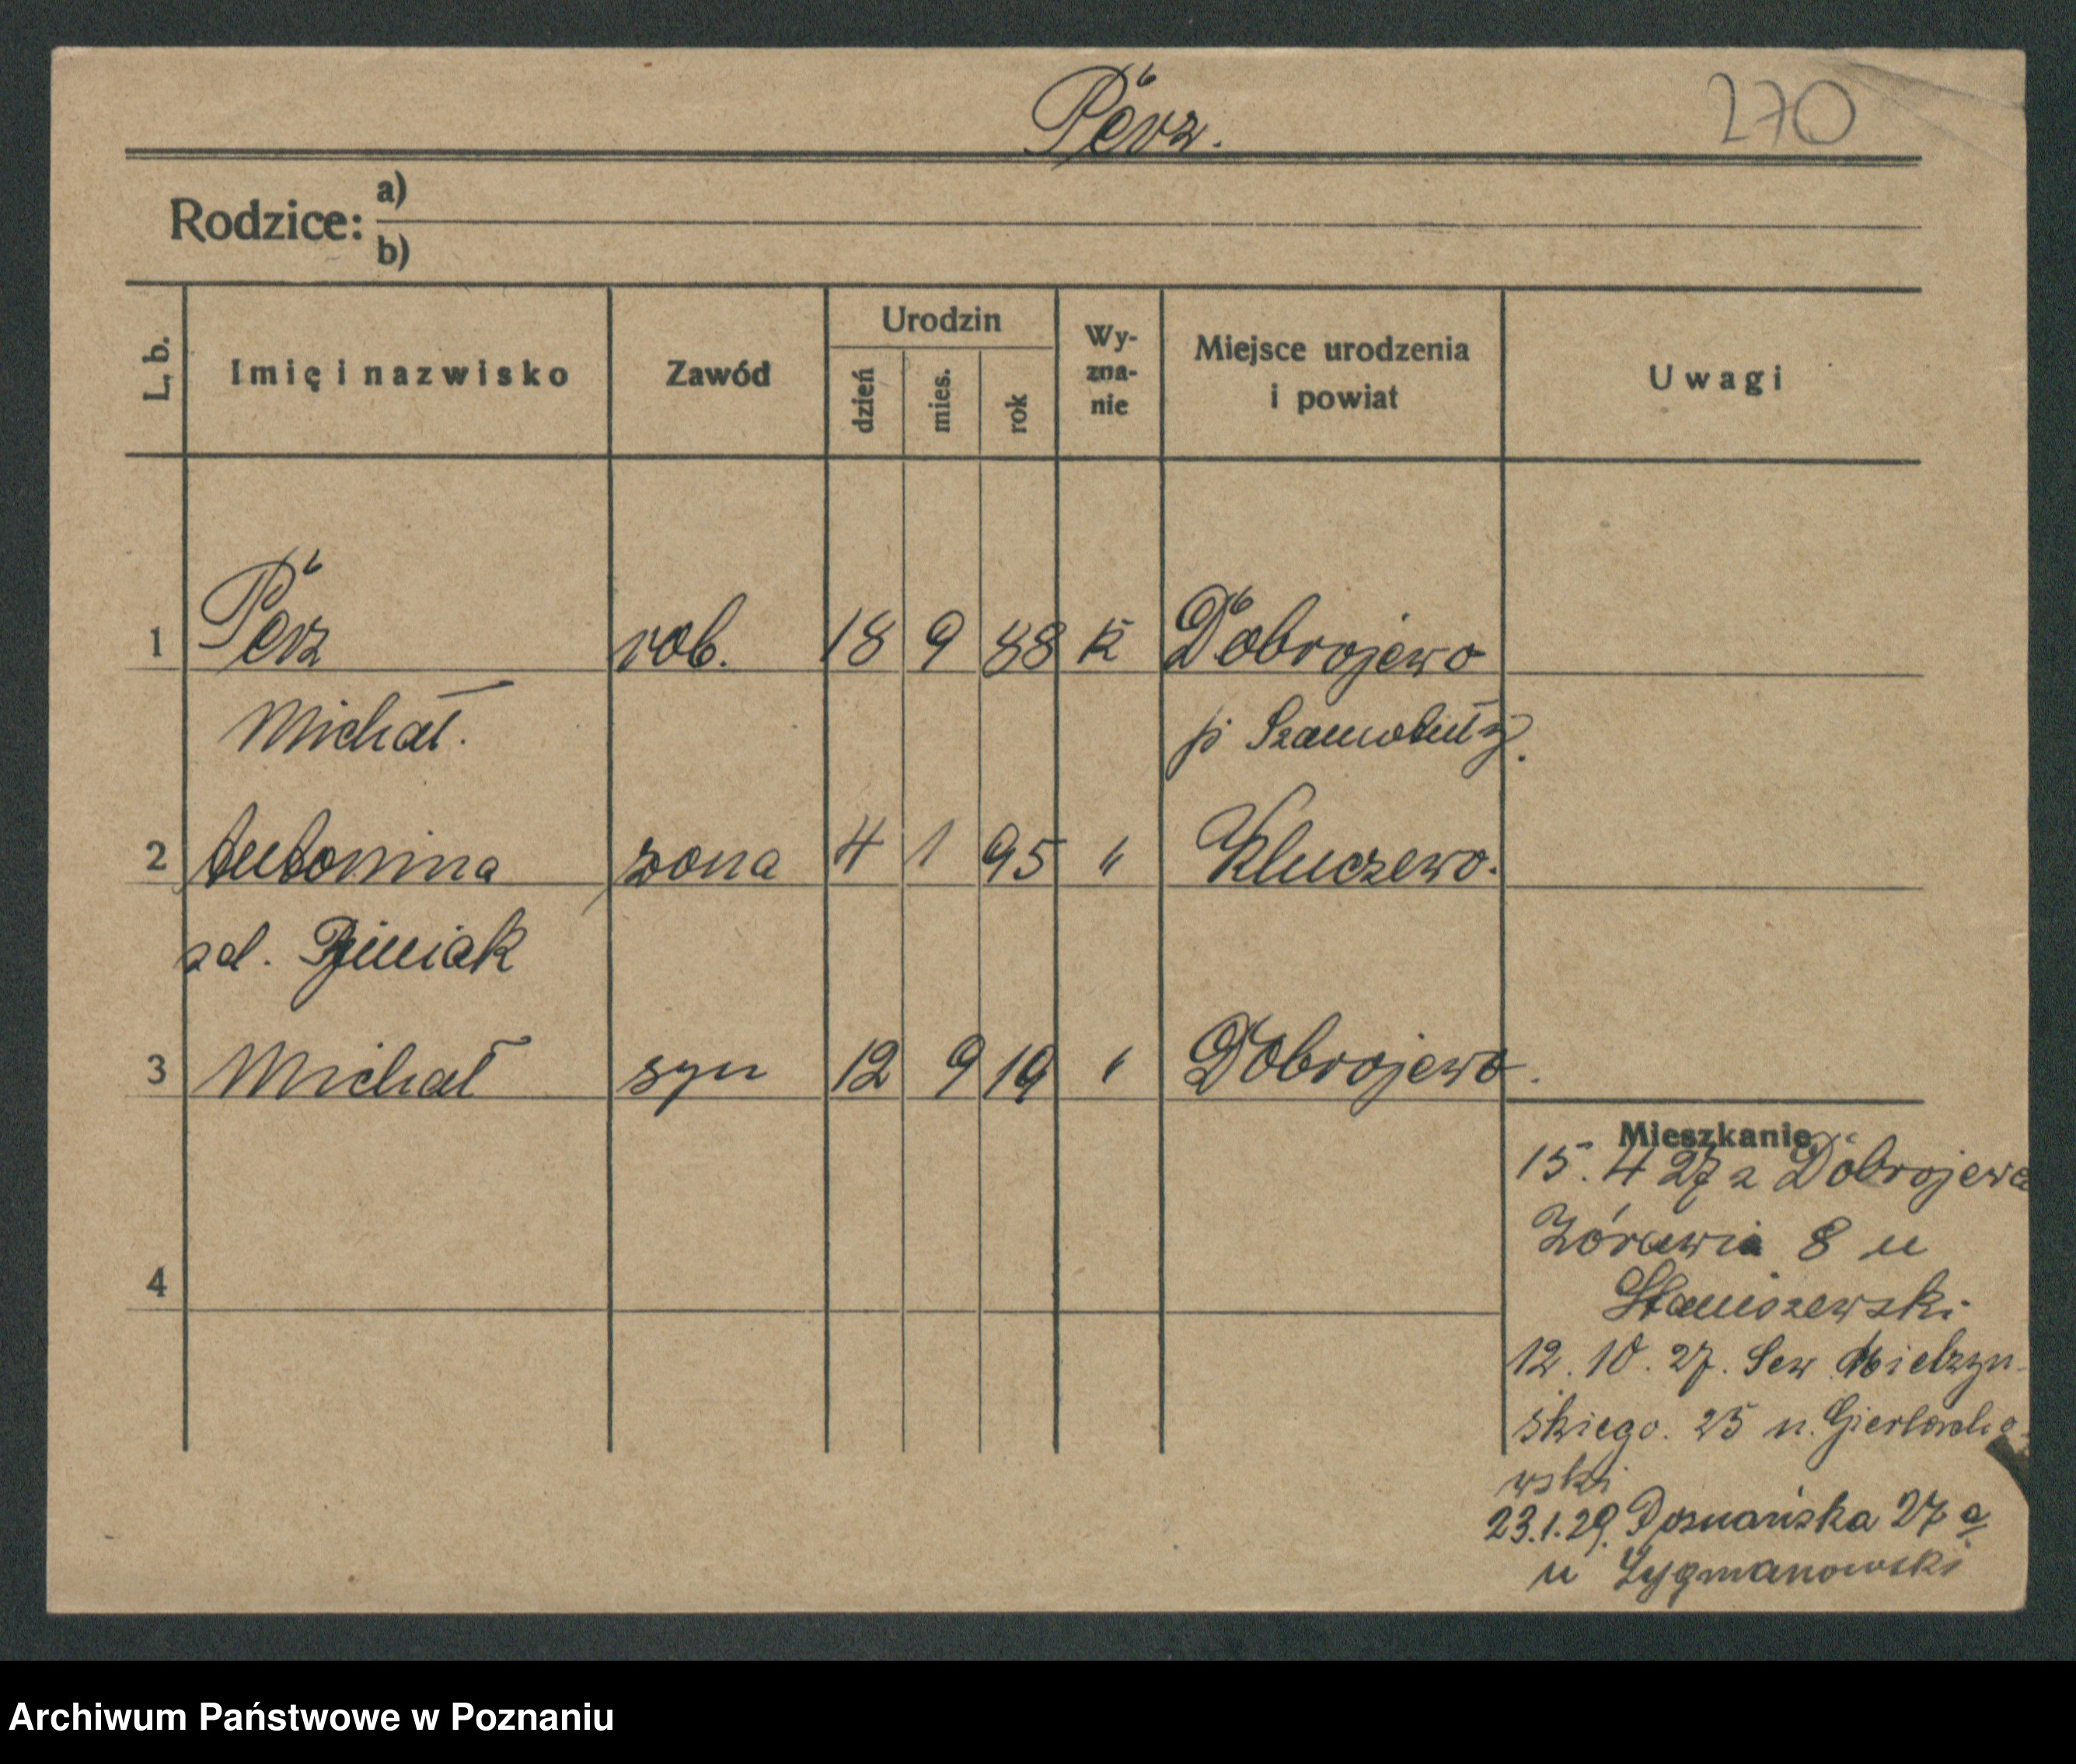 Perz.
270
Rodzice:
a)
b)
L. b.
Imię i nazwisko
Zawód
Urodzin
dzień
mies.
rok
Wy-
zna-
nie
Miejsce urodzenia
i powiat
Uwagi
1 Perz rob. 18 9 88 k Dobrojewo
Michał. p Szamotuły.
2 Antonina zona 4 1 95 " Kluczewo.
zd.
3 Michał syn 12 9 19 " Dobrojewo.
Mieszkanie
15. 4 27 z Dobrojewa
Zórawia 8 u
Staniszewski
12. 10. 27. Sew Mielzyn-
skiego. 25 u.
wski
23.1.29. Poznańska 27 a
u Zygmanowski
4
Archiwum Państwowe w Poznaniu